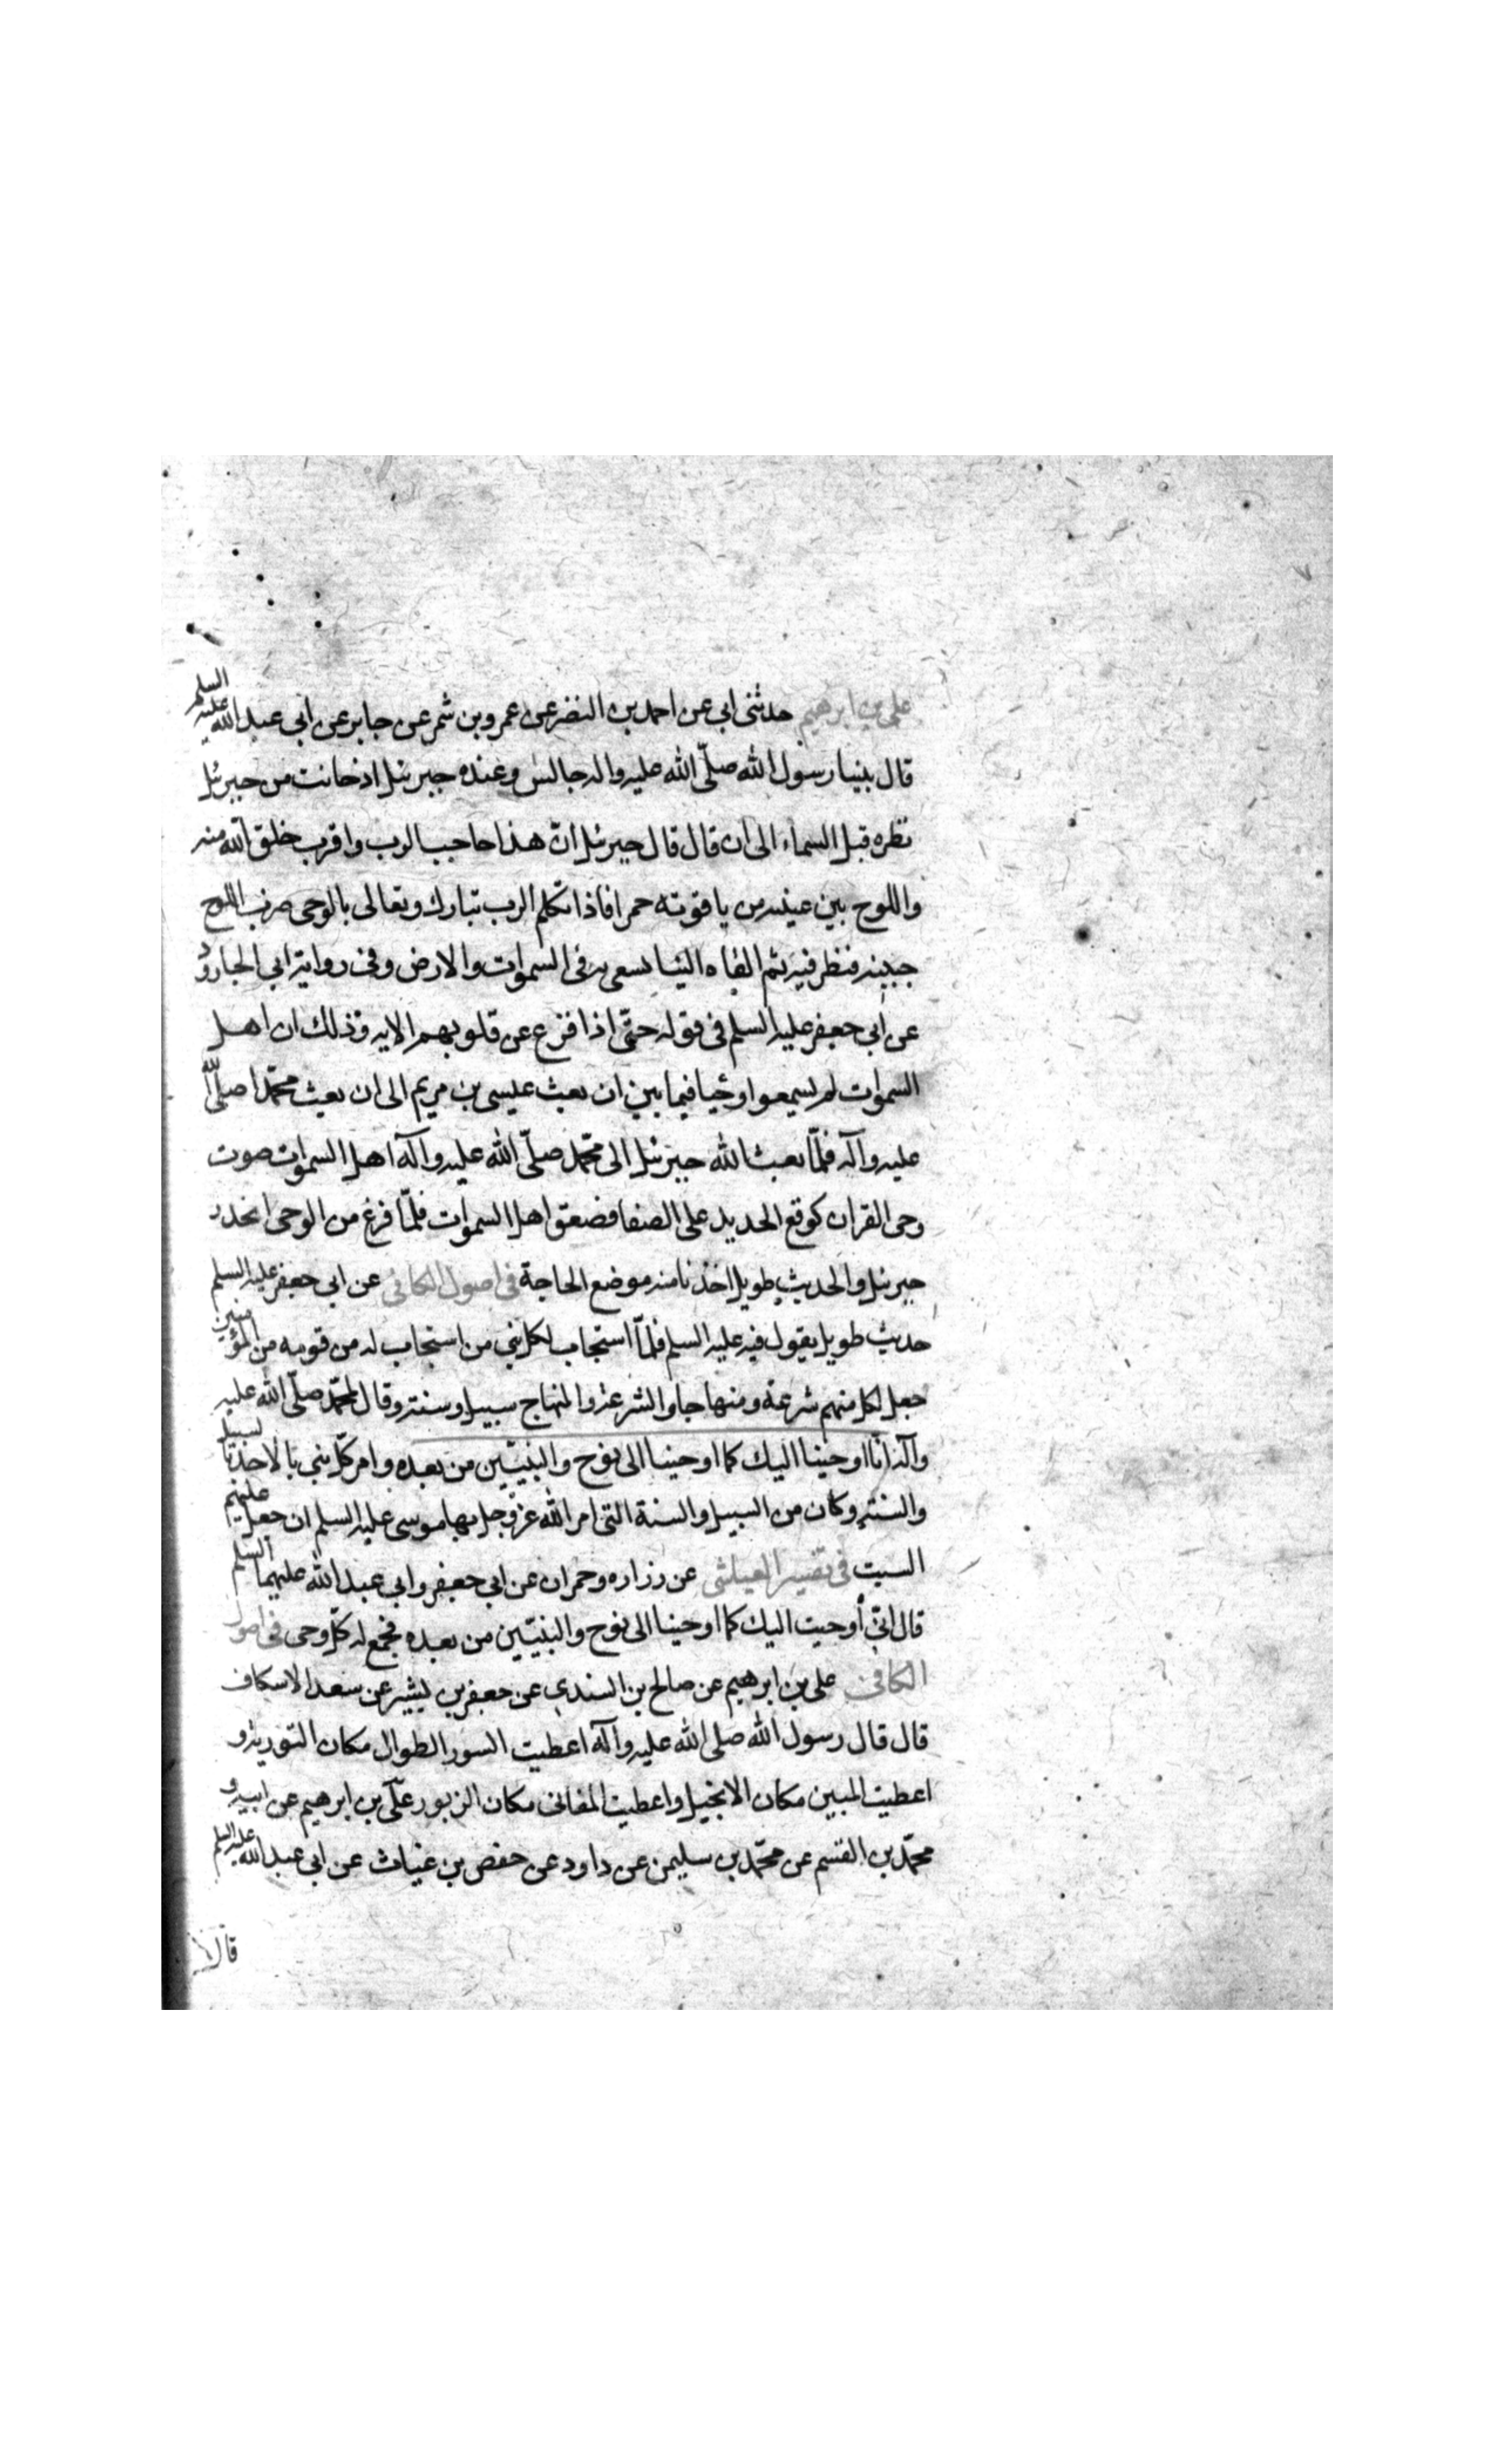 علي بن ابرهيم حدثنى ابى عن احمد بن النضر عن عمرو بن شمر عن جابر عن ابى عبد الله عليه السلم
قال بينا رسول الله صلّى الله عليه واله جالس وعنده جبرئيل اذ حانت من جبرئيل
نظره قبل السماء الى ان قال قال جبرئيل انّ هذا حاجب الرب واقرب خلق الله منه
واللوح بين عينيه من ياقوته حمرا فاذا تكلم الرب تبارك وتعالى بالوحى ضرب اللوح
جبينه فنظر فيه ثم القاه الينا نسعى به فى السموات والارض وفى رواية ابى الجارود
عن ابى جعفر عليه السلم فى قوله حتّى اذا فزع عن قلوبهم الايه وذلك ان اهل
السموات لم يسمعوا وحيا فيما بين ان بعث عيسى بن مريم الى ان بعث محمّدا صلّى الله
عليه وآله فلمّا بعث الله جبرئيل الى محمّد صلّى الله عليه وآله اهل السموات صوت
وحى القران كوقع الحديد على الصفا فصعق اهل السموات فلمّا فرغ من الوحى انحدر
جبرئيل والحديث طويل اخذنا منه موضع الحاجة فى اصول الكافى عن ابى جعفر عليه السلم
حديث طويل يقول فيه عليه السلم فلمّا استجاب لكل نبي من استجاب له من قومه من المؤمنين
جعل لكل منهم شرعة ومنهاجا والشرعة والمنهاج سبيل وسنة وقال لمحمّد صلّى الله عليه
وآله انّا اوحينا اليك كما اوحينا الى نوح والنبيّين من بعده وامر كلّ نبي بالاخذ بالسبيل
والسنة وكان من السبيل والسنة التى امر الله عزّ وجل بها موسى عليه السلم ان جعل عليهم
السبت فى تفسير العياشى عن زراره وحمران عن ابى جعفر وابى عبد الله عليهما السلم
قال انّى أوحيت اليك كما اوحينا الى نوح والنبيّين من بعده فجمع له كلّ وحى فى اصول
الكافى على بن ابرهيم عن صالح بن السندى عن جعفر بن بشير عن سعد الاسكاف
قال قال رسول الله صلى الله عليه وآله اعطيت السور الطوال مكان التورية و
اعطيت المبين مكان الانجيل واعطيت المثانى مكان الزبور علّى بن ابرهيم عن ابيه و
محمّد بن القسم عن محمّد بن سليمن عن داود عن حفص بن غياث عن ابى عبد الله عليه السلم
قال